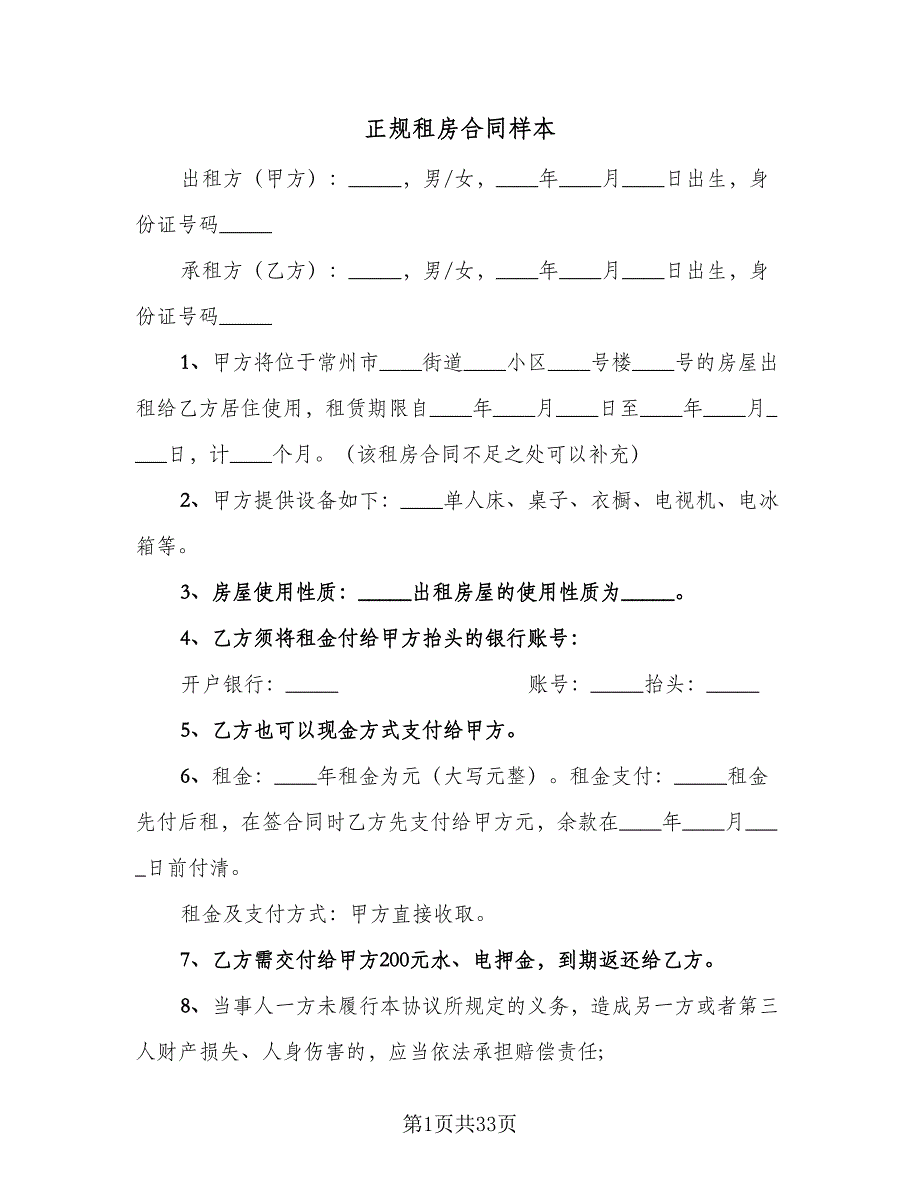 正规租房合同样本
出租方（甲方）：_____，男/女，____年____月____日出生，身
份证号码_____
承租方（乙方）：_____，男/女，____年____月____日出生，身
份证号码_____
1、甲方将位于常州市____街道____小区____号楼____号的房屋出
租给乙方居住使用，租赁期限自____年____月____日至____年____月_
___日，计____个月。（该租房合同不足之处可以补充）
2、甲方提供设备如下：____单人床、桌子、衣橱、电视机、电冰
箱等。
3、房屋使用性质：_____出租房屋的使用性质为_____。
4、乙方须将租金付给甲方抬头的银行账号：
开户银行：_____ 账号：_____抬头：_____
5、乙方也可以现金方式支付给甲方。
6、租金：____年租金为元（大写元整）。租金支付：_____租金
先付后租，在签合同时乙方先支付给甲方元，余款在____年____月___
_日前付清。
租金及支付方式：甲方直接收取。
7、乙方需交付给甲方200元水、电押金，到期返还给乙方。
8、当事人一方未履行本协议所规定的义务，造成另一方或者第三
人财产损失、人身伤害的，应当依法承担赔偿责任;
第1页共33页